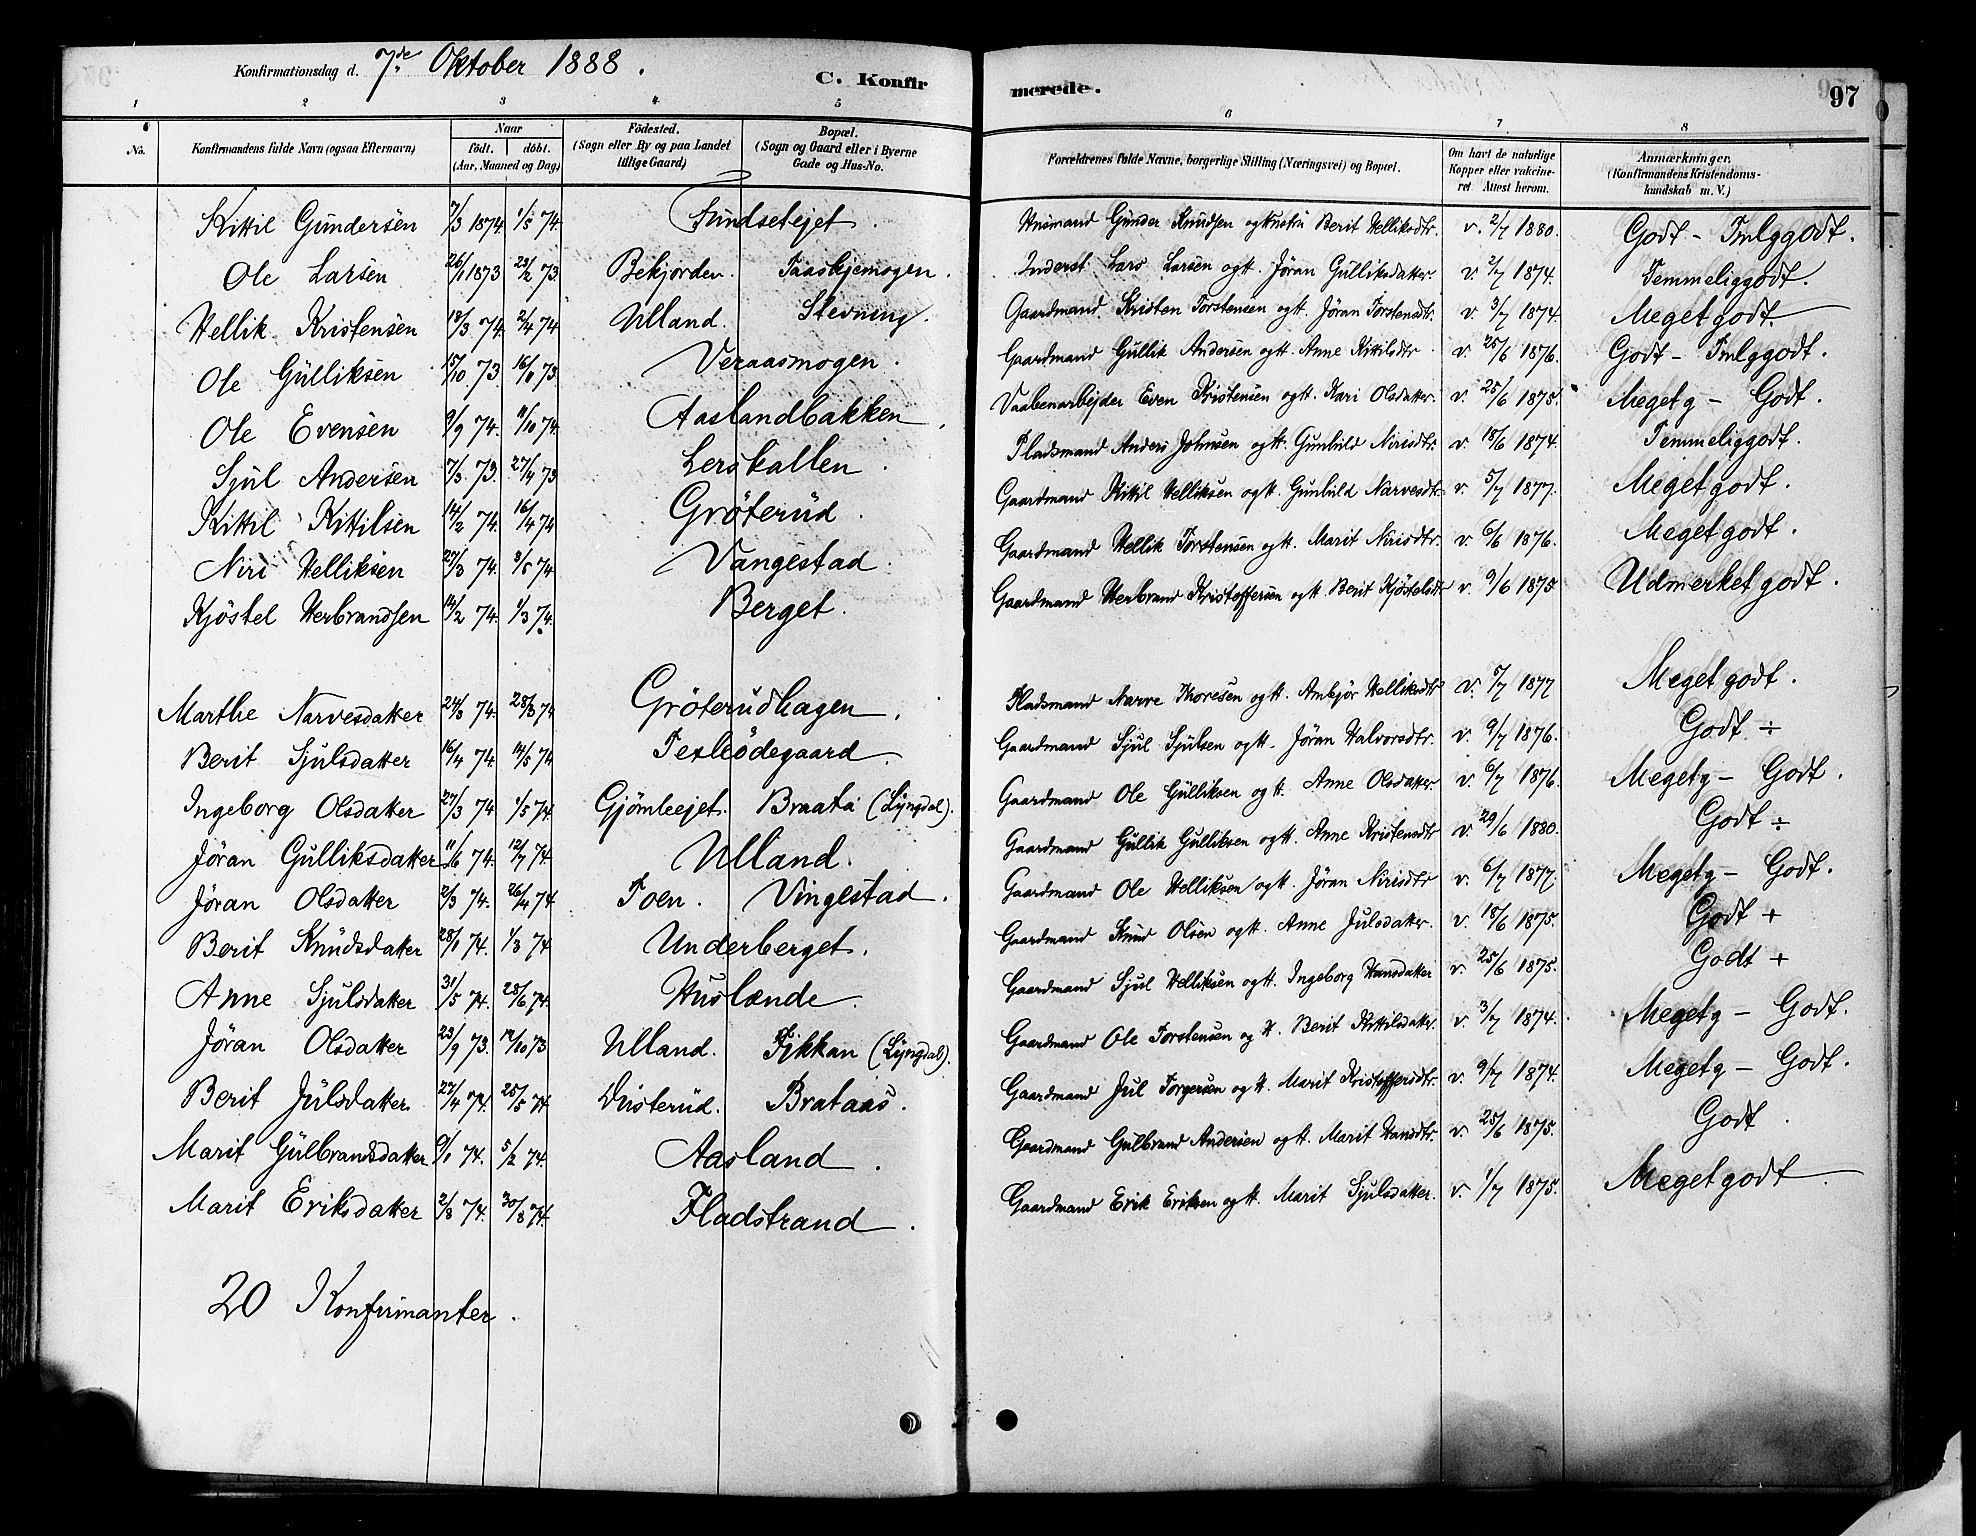 Konfirmationsdag d. 7de Oktober 1888.
C. Konfirmerede.
97
1 2 3 4 5 6 7 8
No.
Konfirmandens fulde Navn (ogsaa Efternavn)
Naar
födt. döbt.
(Aar, Maaned og Dag)
Födested.
(Sogn eller By og paa Landet
tillige Gaard)
Bopæl.
(Sogn og Gaard eller i Byerne
Gade og Hus-No.
Forældrenes fulde Navne, borgerlige Stilling (Næringsvei) og Bopæl.
Om havt de naturlige
Kopper eller vakcine-
ret Attest herom.
Anmærkninger.
(Konfirmandens Kristendoms-
kundskab m. V.)
Kittil Gundersen 7/3 1874. 1/5 74. Sundsetejet. Husmand Gunder Knudsen og Hustru Berit Helliksdtr. v. 2/7 1880. Godt - Tmlggodt.
Ole Larsen 26/1 1873 23/2 73. Bekjorden. Taaskjemogen. Inderst Lars Larsen og H. Jöran Gulliksdatter v. 2/7 1874. Temmeliggodt.
Hellik Kristensen 18/3 74. 2/4 74 Ulland. Stevning. Gaardmand Kristen Torstensen og H. Jöran Torstensdtr. v. 3/7 1874. Meget godt.
Ole Gulliksen 15/10 73 16/11 73. Veraasmogen. Gaardmand Gullik Andersen og H. Anne Kitilsdtr v. 25/6 1876. Godt - Tmlggodt.
Ole Evensen 9/9 74. 11/10 74. Aaslandbakken. Vaabenarbejder Even Kristensen og H. Kari Olsdatter. v. 25/6 1875. Meget g - Godt.
Sjul Andersen 7/3 73. 27/4 73 Lerskallen. Pladsmand Anders Johnsen og H. Gunhild Nirisdtr. v. 18/6 1874. Temmeliggodt.
Kittil Kittilsen 14/2 74. 16/4 74 Gröterud. Gaardmand Kittil Helliksen og H. Gunhild Narvesdtr. v. 5/7 1877. Meget godt.
Niri Helliksen 27/3 74. 3/5 74 Vangestad. Gaardmand Hellik Torstensen og H. Marit Nirisdtr. v. 6/6 1876. Meget godt.
Kjöstel Herbrandsen 14/2 74. 1/3 74. Berget. Gaardmand Herbrand Kristoffersen og H. Berit Kjöstelsdtr v. 9/6 1875 Udmerket godt.
Marthe Narvesdatter 24/3 74. 28/3 74 Gröterudhagen. Pladsmand Narve Thoresen og H. Ambjör Helliksdtr v. 5/7 1877 Meget godt.
Berit Sjulsdatter 16/4 74. 14/5 74 Tesleödegaard. Gaardmand Sjul Sjulsen og H. Jöran Halvorsdtr. v. 9/7 1876. Godt ÷
Ingeborg Olsdatter 27/3 74 1/5 74. Gjömleejet. Braata (Lyngdal). Gaardmand Ole Gulliksen og H. Anne Olsdatter. v. 6/7 1876. Meget g - Godt.
Jöran Gulliksdatter 11/6 74. 12/7 74. Ulland. Gaardmand Gullik Gulliksen og H. Anne Kristensdtr v. 29/6 1880. Godt ÷
Jöran Olsdatter 2/3 74. 26/4 74 Foen. Vingestad. Gaardmand Ole Helliksen og H. Jöran Nirisdtr v. 6/7 1877. Meget g - Godt.
Berit Knudsdatter 28/1 74. 1/3 74 Underberget. Gaardmand Knud Olsen og H. Anne Julsdatter. v. 18/6 1875. Godt +
Anne Sjulsdatter 31/5 74. 28/6 74. Huslænde. Gaardmand Sjul Helliksen og H. Ingeborg Hansdatter v. 25/6 1875. Godt +
Jöran Olsdatter 23/9 73. 12/10 73 Ulland. Fikkan (Lyngdal). Gaardmand Ole Torstensen og H. Berit Kittilsdatter. v. 3/7 1874. Meget g - Godt.
Berit Julsdatter. 27/4 74. 25/5 74 Disterud. Brataas. Gaardmand Jul Torgersen og H. Marit Kristoffersdtr. v. 9/7 1874. Meget g - Godt.
Marit Gulbrandsdatter 9/1 74. 5/2 74. Aasland. Gaardmand Gulbrand Andersen og H. Marit Hansdtr. v. 25/6 1875. Godt.
Marit Eriksdatter 2/8 74. 30/8 74. Fladstrand. Gaardmand Erik Eriksen og H. Marit Sjulsdatter. v. 1/7 1875. Meget godt.
20 Konfirmanter.